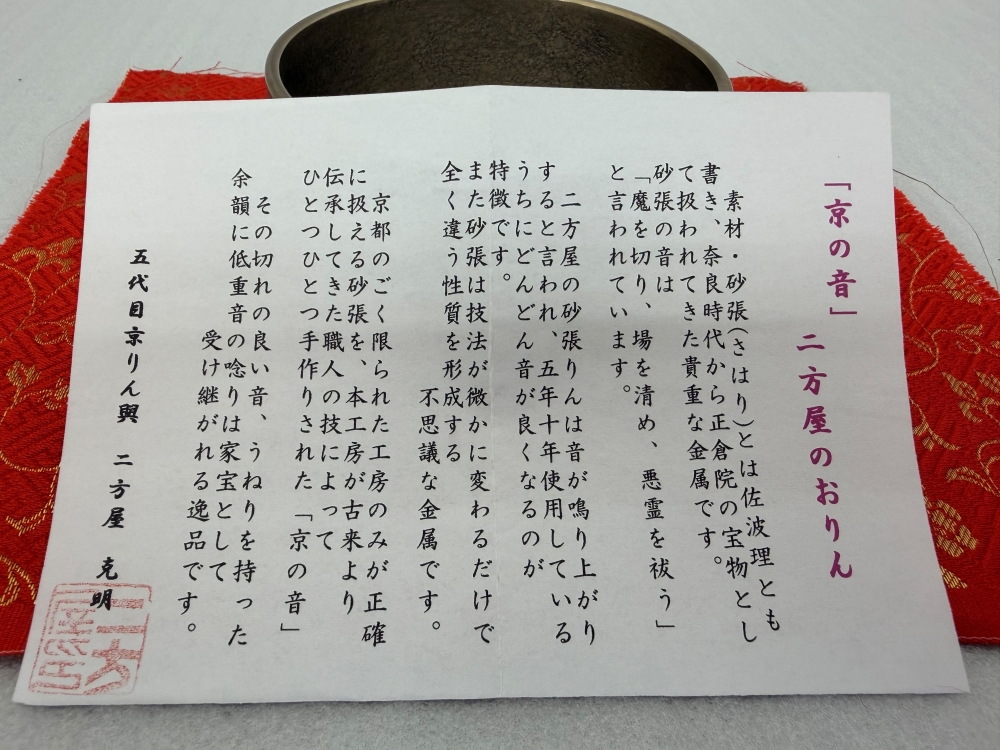 「京の音」 二方屋のおりん
素材・砂張(さはり)とは佐波理とも
書き、奈良時代から正倉院の宝物とし
て扱われてきた貴重な金属です。
砂張の音は
「魔を切り、場を清め、悪霊を祓う」
と言われています。
二方屋の砂張りんは音が鳴り上がり
すると言われ、五年十年使用している
うちにどんどん音が良くなるのが
特徴です。
また砂張は技法が微かに変わるだけで
全く違う性質を形成する
不思議な金属です。
京都のごく限られた工房のみが正確
に扱える砂張を、本工房が古来より
伝承してきた職人の技によって
ひとつひとつ手作りされた「京の音」
その切れの良い音、うねりを持った
余韻に低重音の唸りは家宝として
受け継がれる逸品です。
五代目京りん輿 二方屋 克明